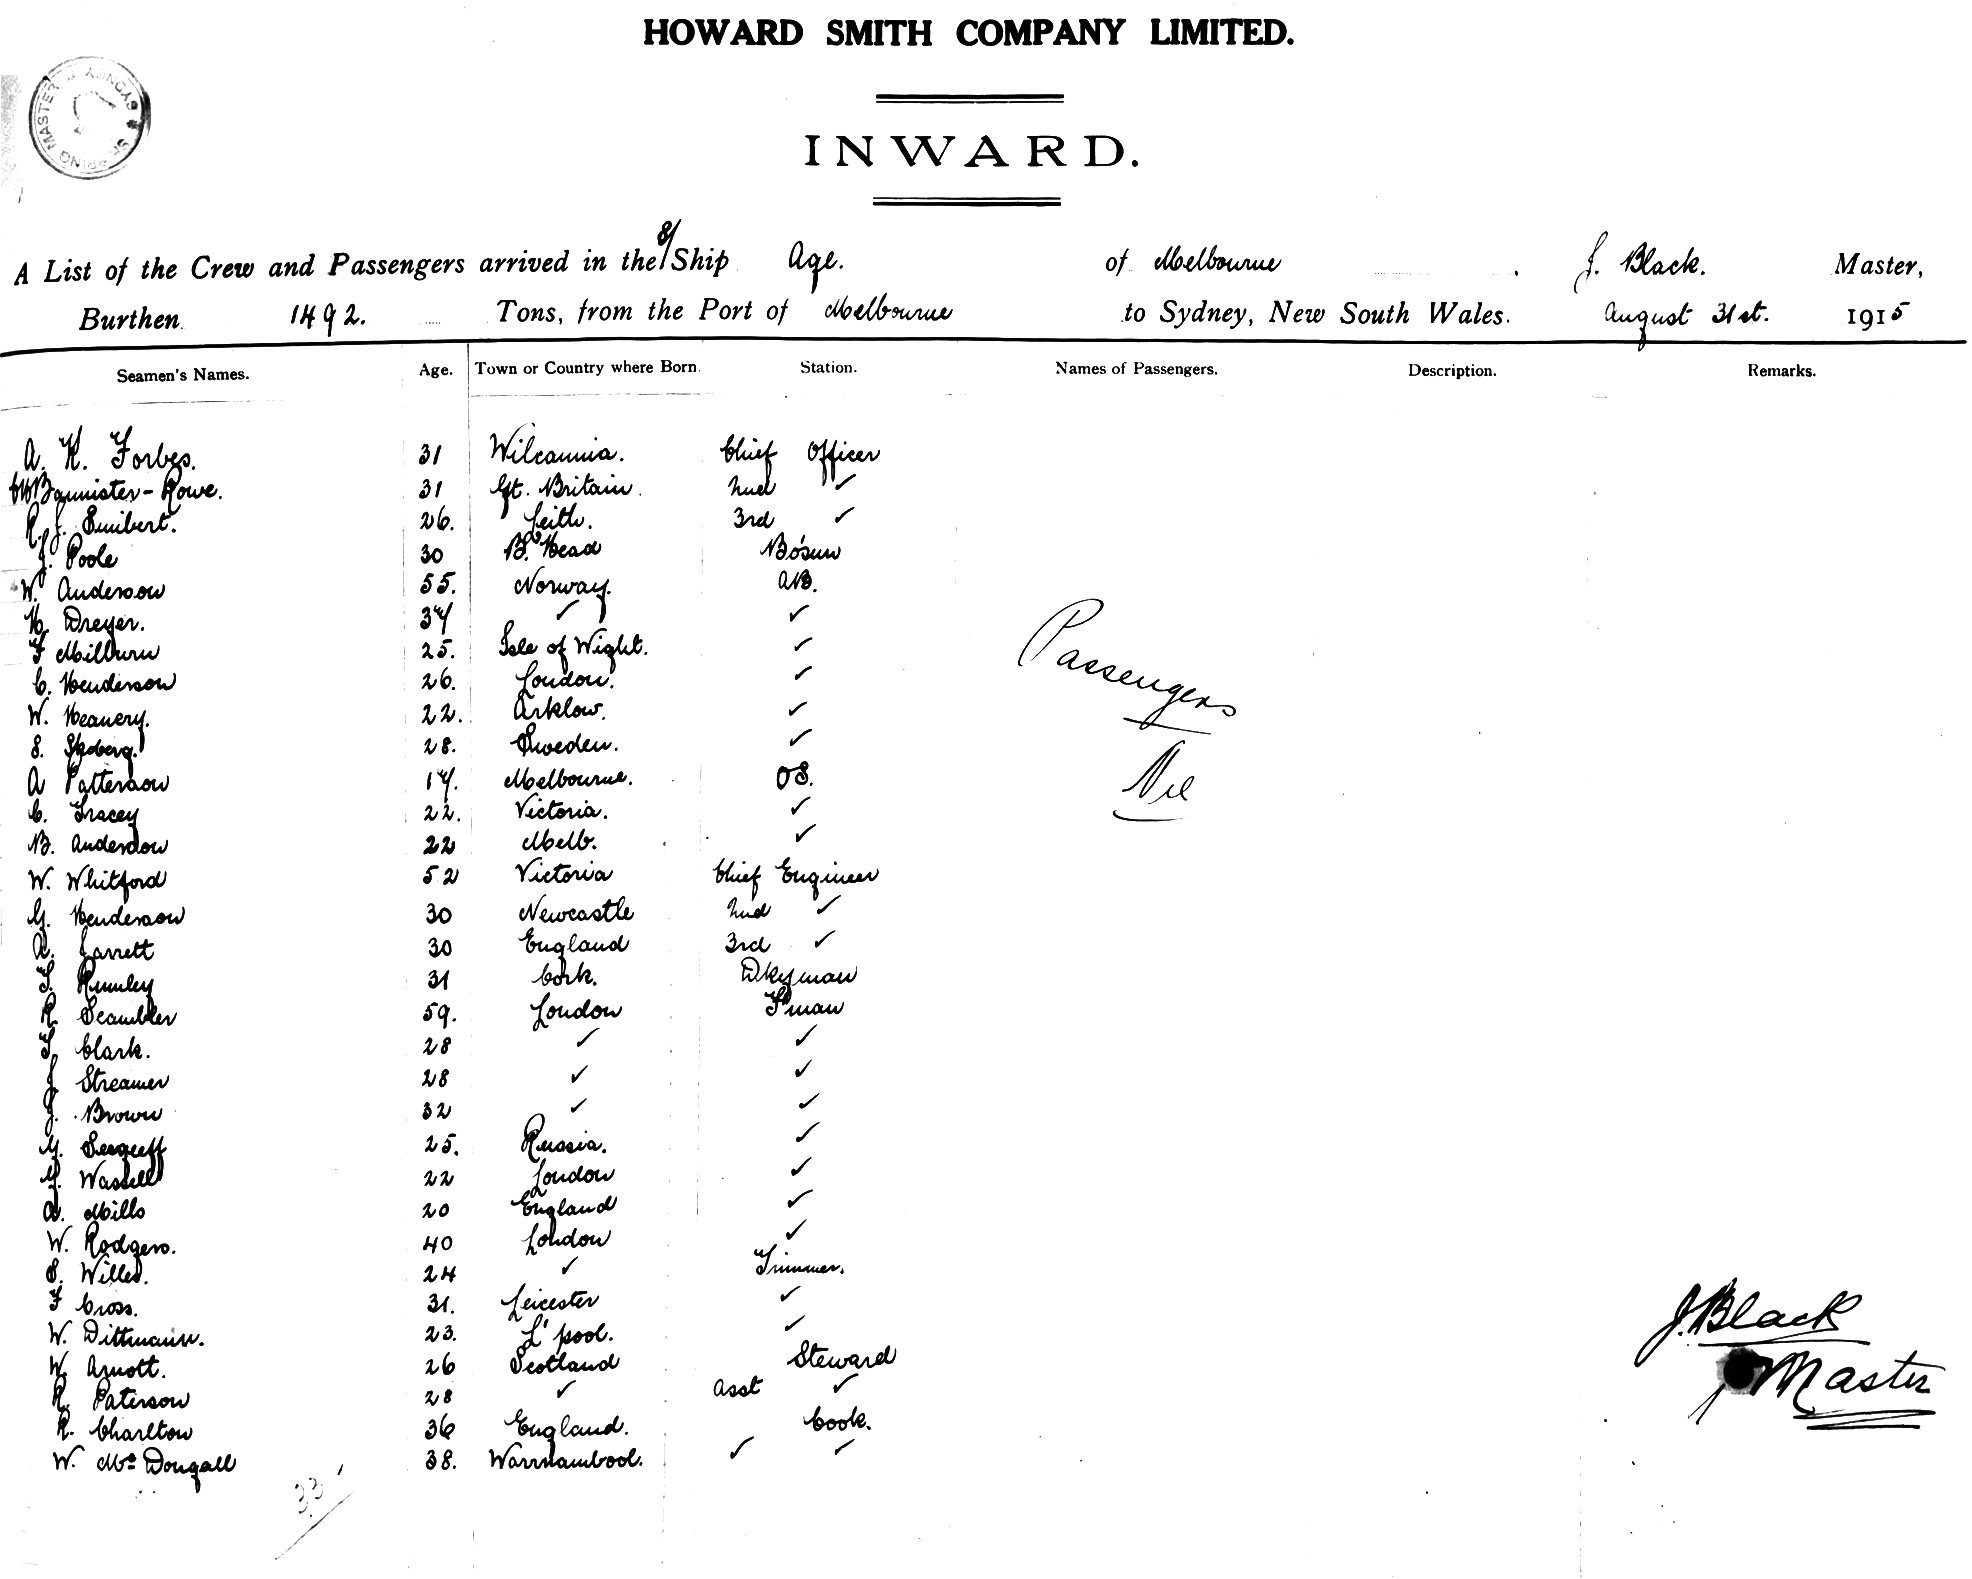 HOWARD SMITH COMPANY LIMITED.
INWARD.
A List of the Crew and Passengers arrived in the S/Ship Age. of Melbourne J. Black. Master,
Burthen 1492. Tons, from the Port of Melbourne to Sydney, New South Wales. August 31st. 1915
Seamen's Names. Age. Town or Country where Born. Station. Names of Passengers. Description. Remarks.
A. K. Forbes. 31 Wilcannia. Chief Officer
Bannister-Rowe. 31 Gt. Britain. 2nd ✓
R. J. Smibert. 26. Leith. 3rd ✓
J. Poole 30 B'Head Bósun
W. Anderson 55. Norway. AB.
H. Dreyer. 37 ✓ ✓
F Milburn 25. Isle of Wight. ✓
C. Henderson 26. London. ✓
W. Heanery. 22. Arklow. ✓
S. 28. Sweden. ✓
A Patterson 17. Melbourne. OS.
C. Tracey 22. Victoria. ✓
B. Anderson 22 Melb. ✓
W. Whitford 52 Victoria Chief Engineer
G. Henderson 30 Newcastle 2nd ✓
A. Jarrett 30 England 3rd ✓
T. Rumley 31 Cork. Dkyman
R. Scambler 59. London F'man
T. Clark. 28 ✓ ✓
J. Streamer 28 ✓ ✓
J. Brown 32 ✓ ✓
G. Sergeeff 25. Russia. ✓
G. Wassell 22 London ✓
A. Mills 20 England ✓
W. Rodgers. 40 London ✓
S. Willes. 24 ✓ Trimmer.
F Cross. 31. Leicester ✓
W. Dittmann. 23. L'pool. ✓
W. Arnott. 26 Scotland Steward
R. Paterson 28 ✓ Asst ✓
R. Charlton 36 England. Cook.
W. McDougall 38. Warrnambool. ✓ ✓
33
Passengers
Nil
J. Black
Master